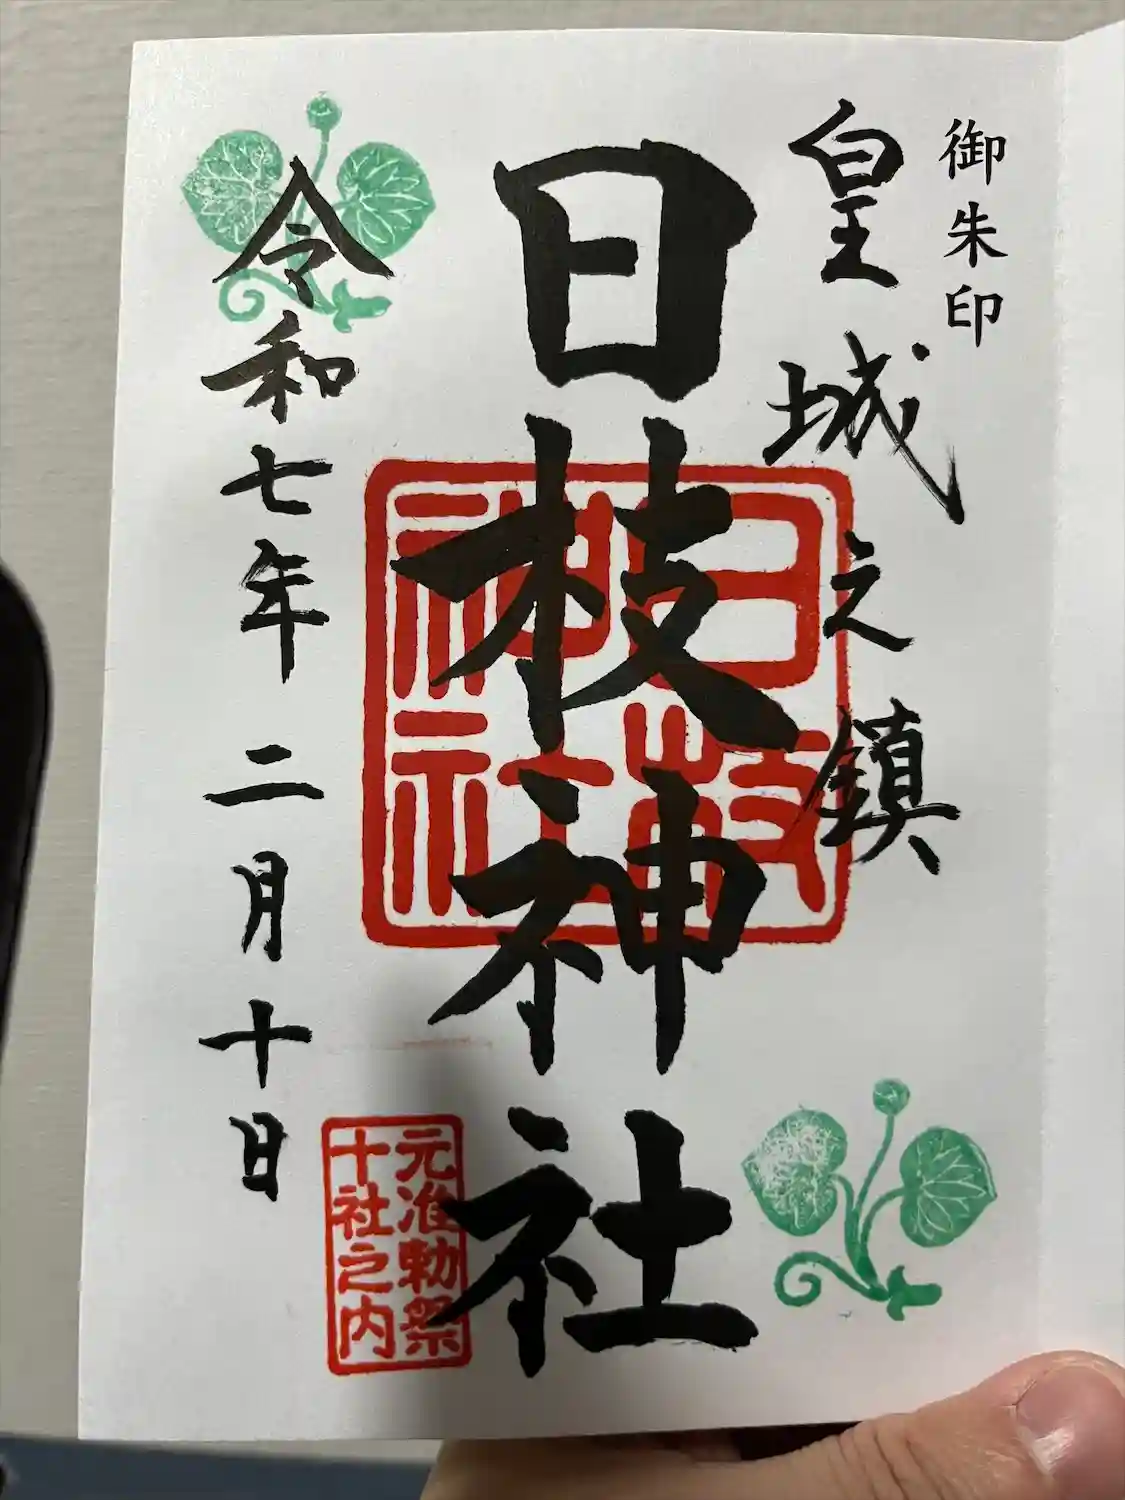 御朱印
皇城之鎮
日枝神社
日枝
神社
元准勅祭
十社之内
令和七年二月十日